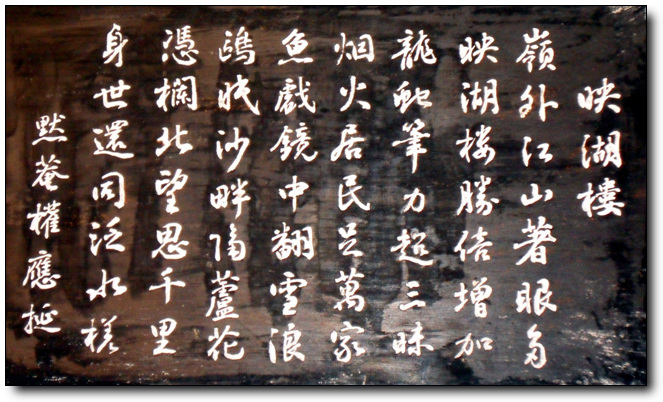 映湖樓
嶺外江山著眼多
映湖楼勝倍增加
龍虵筆力超三昧
烟火居民足萬家
魚戲鏡中翻雪浪
鴎眠沙畔隔蘆花
憑欄北望思千里
身世還同泛水槎
默菴權應挺